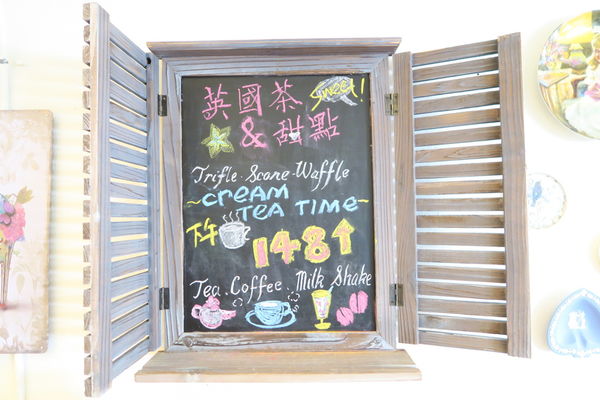 英國茶 Sweet!
& 甜點
Trifle·Scone·Waffle
~CREAM
TEA TIME~
下午 148↑
Tea.Coffee.Milk Shake